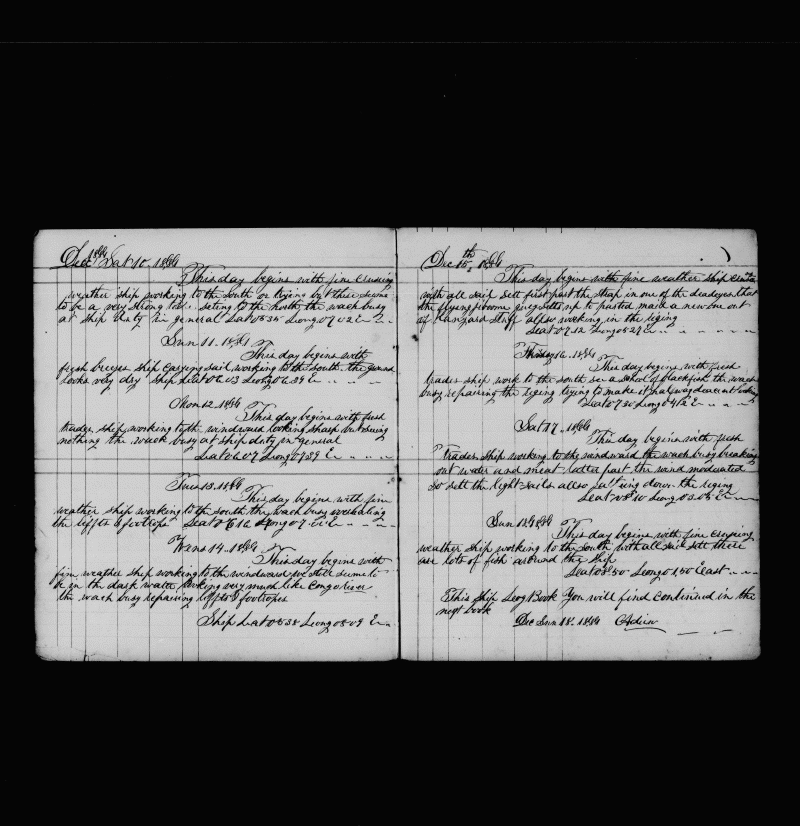 Dec Sat 10. 1864
This day begins with fine
weather ship working to the south or trying but there seems
to be a very strong seting to the north the wach busy
at ship duty in general Lat 05 35 Long 07 02 E
Sun 11. 1864
This day begins with
fresh breese ship carying sail working to the south the
looks very day Ship Lat 06.03 Long 06.39 E
Mon 12. 1864
This day begins with fresh
trades ship working to the windward looking sharp but seing
nothing the wach busy at ship duty in general
Lat 06 07 Long 07 59 E
Tues 13. 1864
This day begins with fin
weather ship working to the south the wach busy overhaling
the liffts & footrops Lat 06 16 Long 07
Wens 14. 1864
This day begins with
fin weather ship working to the windward we still seem to
be in the dark watter looking very much like Congo river
the wach busy repairing liffts & footropes
Ship Lat 05 38 Long 08 09 E
Dec 15th 1864
This day begins with fine weather ship
with all sail sett first part the strap in one of the deadyes that
the flying boome up to parted made a new one out
of Lanyard stuff allso working in the riging
Lat 07 12 Long 05 27 E
16. 1864
This day begins with fresh
trades ship work to the south see a school of blackfish the wach
busy repairing the riging trying to make it
Lat 07 30 Long 04 12 E
Sat 17. 1864
This day begins with fresh
Trades ship working to the windward the wach busy breaking
out water and meat latter part the wind moderated
so sett the light sails allso taring down the riging
Lat 08 10 Long 03 05 E
Sun 18 1864
This day begins with fine
weather ship working to the south with all sail sett there
are lots of fish around the ship
Lat 08.50 Long 01.50 East
This Ship Log Book You will find continued in the
next book
Dec Sun 18. 1864 Adieu